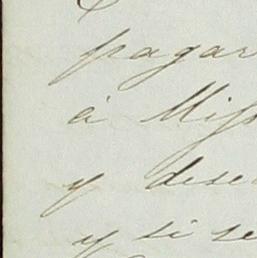 pagar
á Miss
y dese
y si se